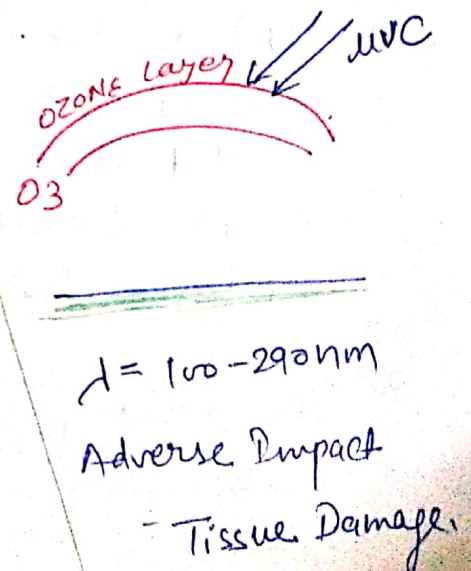 UVC
OZONE Layer
O3
λ = 100-290nm
Adverse Impact
- Tissue Damage.